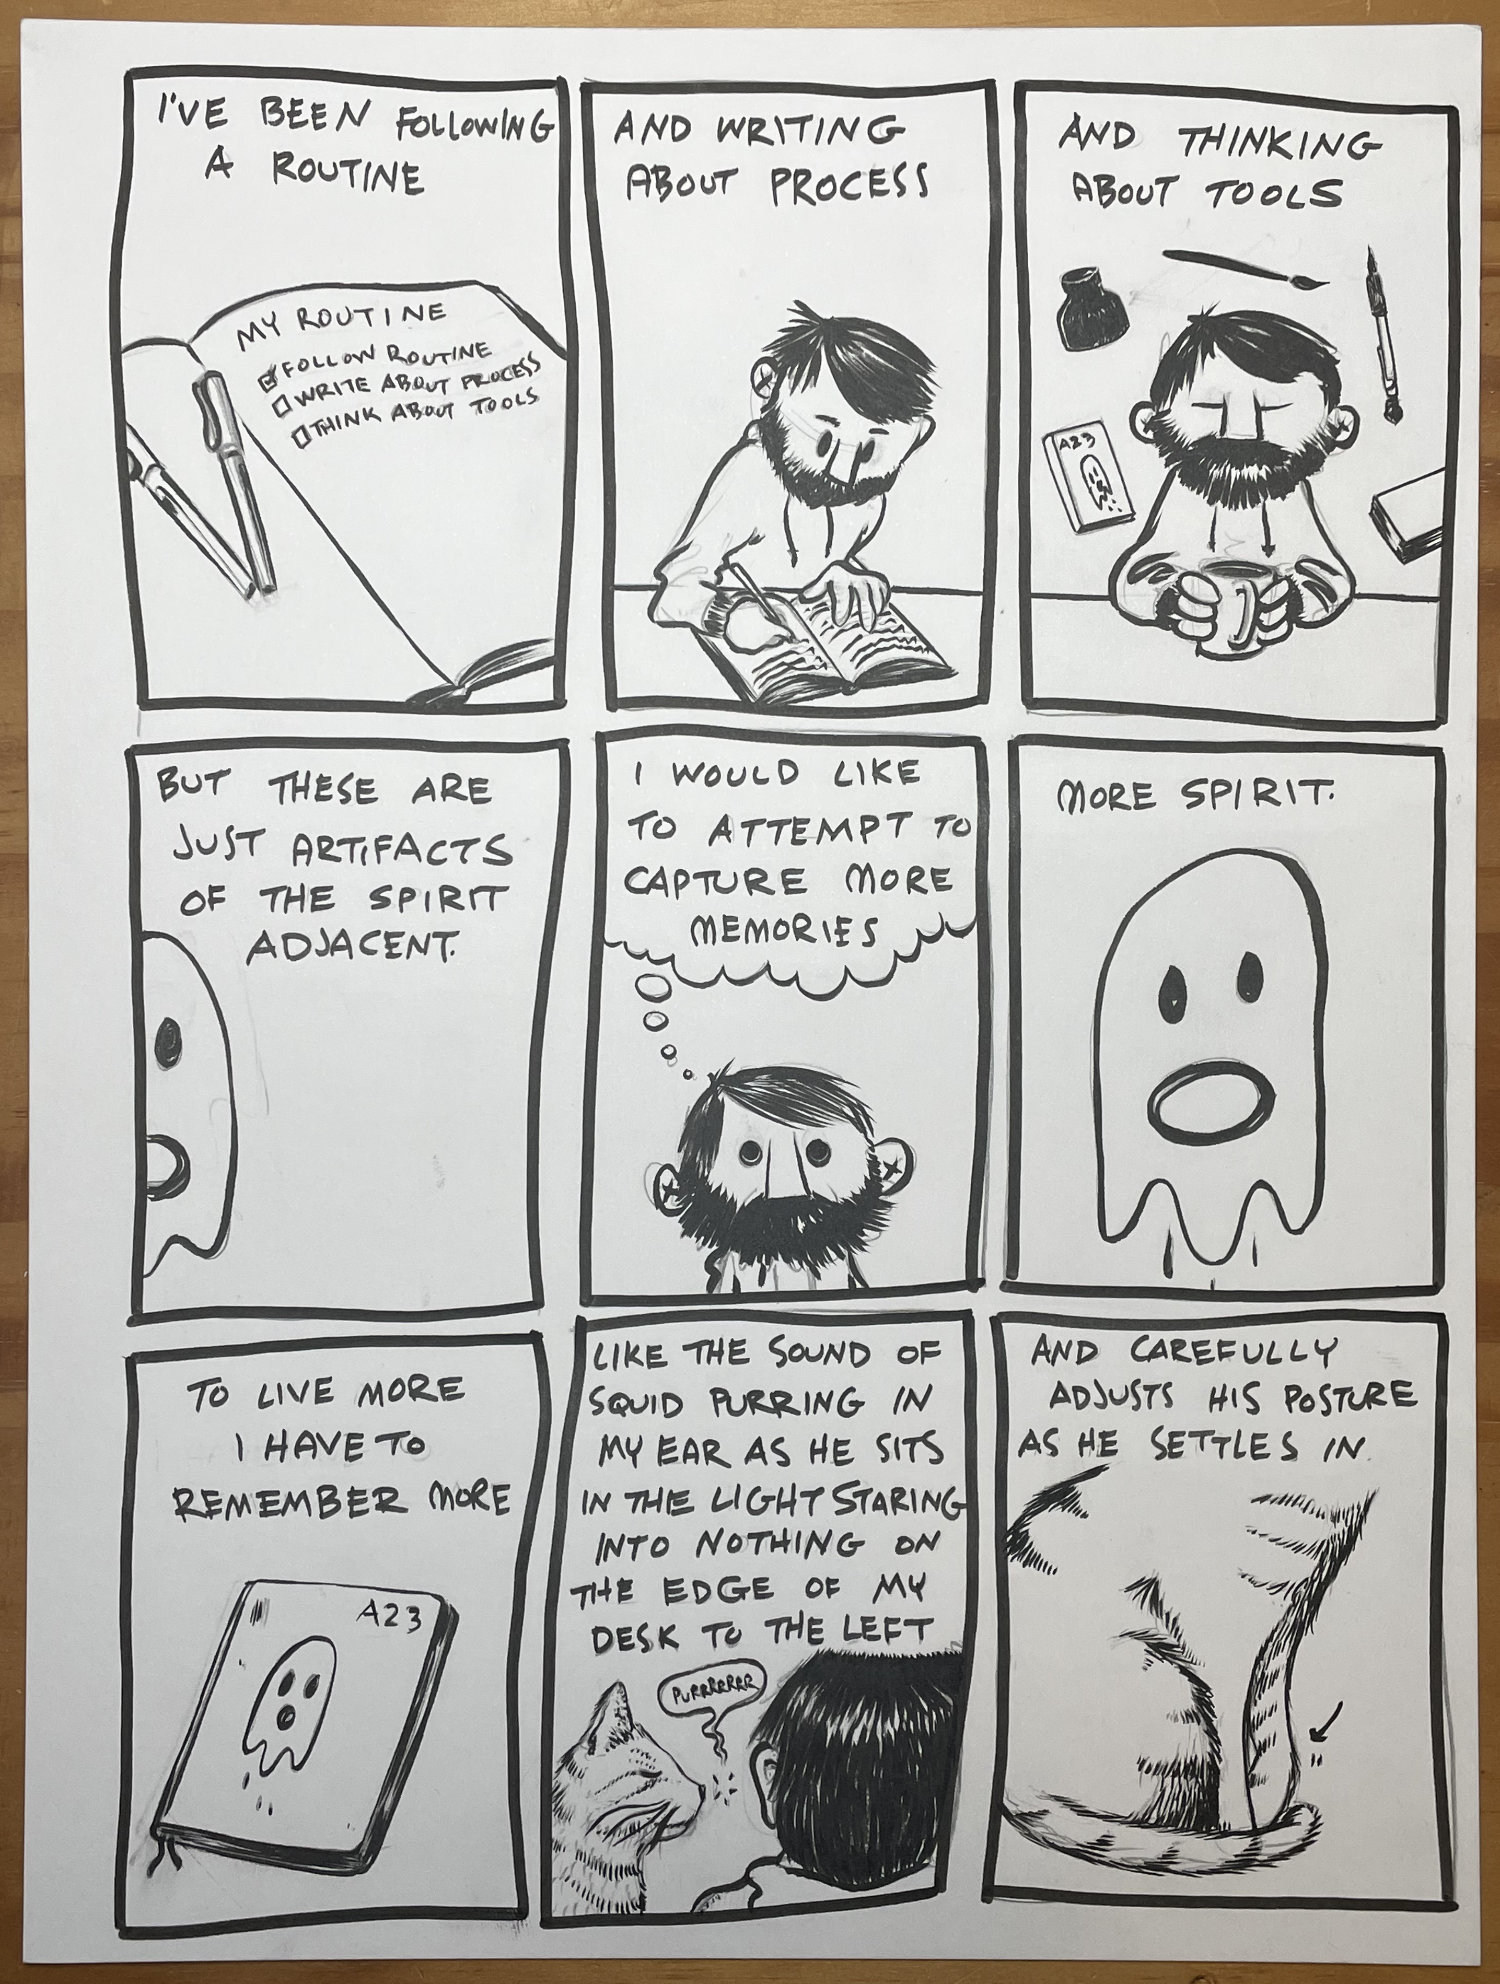 I'VE BEEN FOLLOWING
A ROUTINE
MY ROUTINE
FOLLOW ROUTINE
WRITE ABOUT PROCESS
THINK ABOUT TOOLS
AND WRITING
ABOUT PROCESS
AND THINKING
ABOUT TOOLS
A23
BUT THESE ARE
JUST ARTIFACTS
OF THE SPIRIT
ADJACENT.
I WOULD LIKE
TO ATTEMPT TO
CAPTURE MORE
MEMORIES
MORE SPIRIT.
TO LIVE MORE
I HAVE TO
REMEMBER MORE
A23
LIKE THE SOUND OF
SQUID PURRING IN
MY EAR AS HE SITS
IN THE LIGHT STARING
INTO NOTHING ON
THE EDGE OF MY
DESK TO THE LEFT
PURRRRRRR
AND CAREFULLY
ADJUSTS HIS POSTURE
AS HE SETTLES IN.